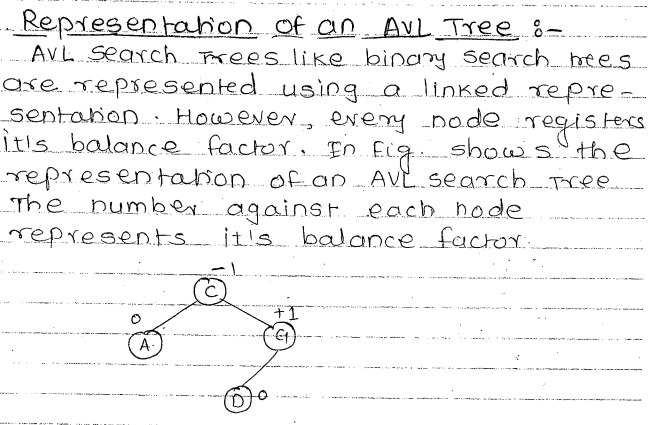 Representation of an AVL Tree :-
AVL search Trees like binary search trees
are represented using a linked repre-
sentation. However, every node registers
it's balance factor. In fig. shows the
representation of an AVL search Tree
The number against each node
represents it's balance factor.
-1
C
0
+1
A
G
D 0